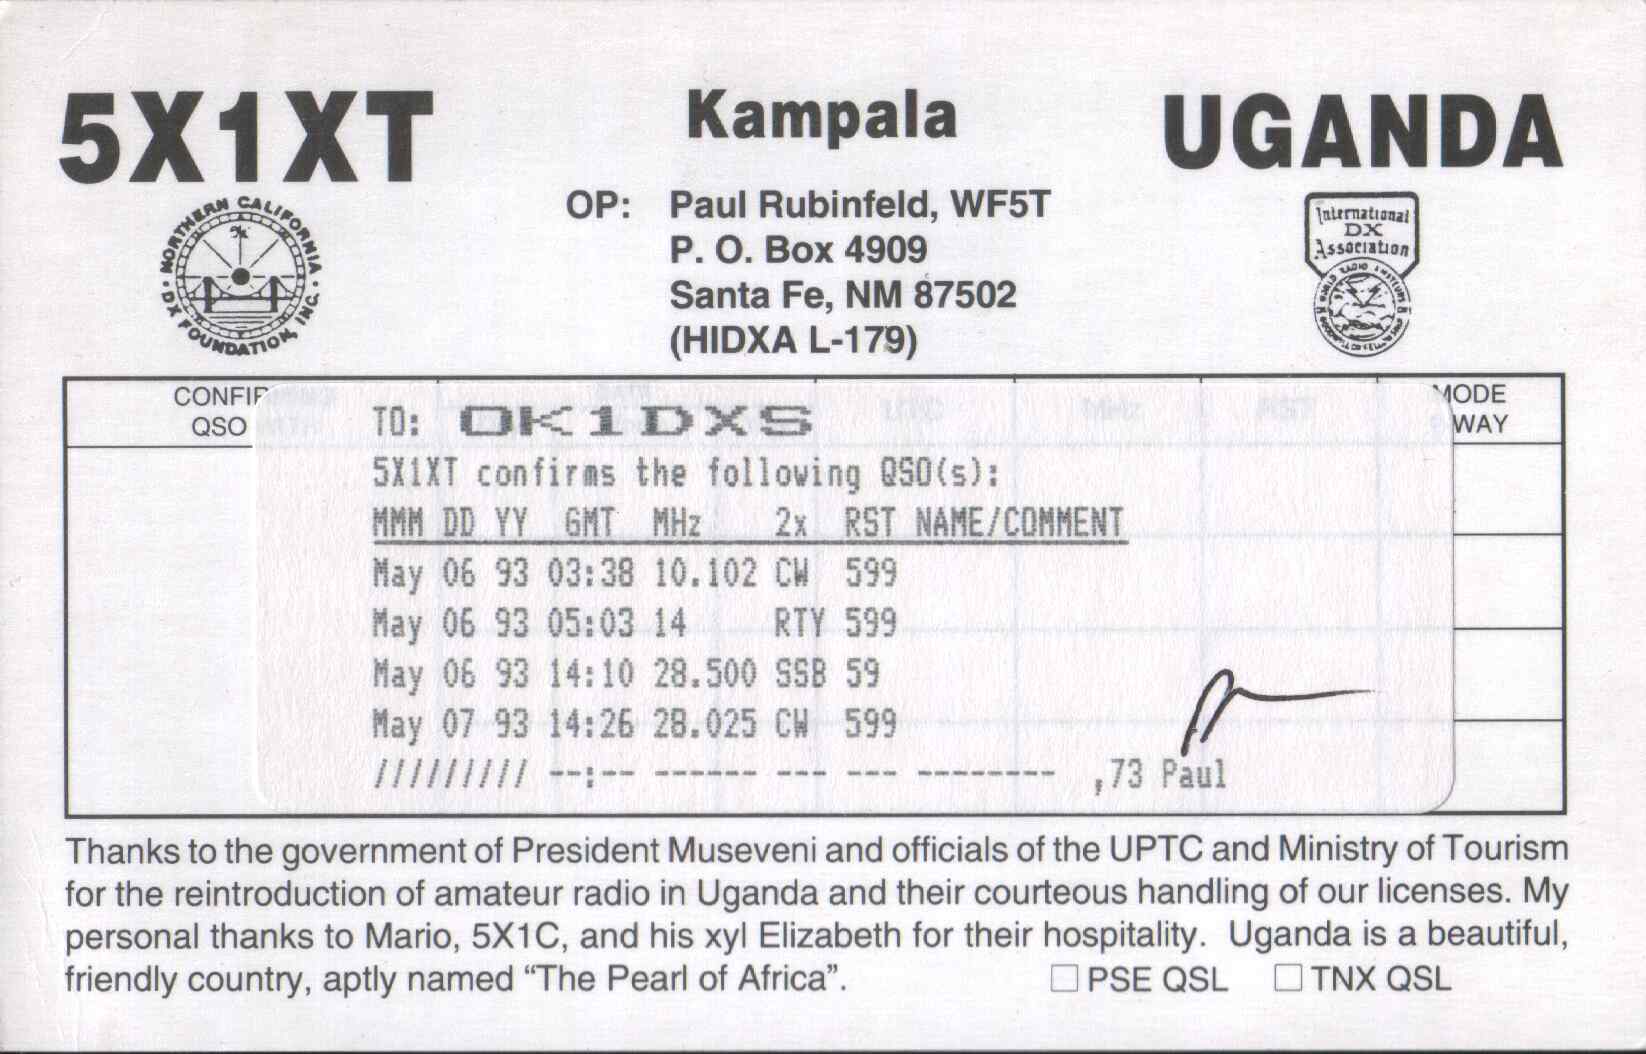 5X1XT
Kampala
UGANDA
NORTHERN CALIFORNIA
DX FOUNDATION, INC.
OP: Paul Rubinfeld, WF5T
P. O. Box 4909
Santa Fe, NM 87502
(HIDXA L-179)
International
DX
Association
CONFIR
QSO
MODE
WAY
TO: OK1DXS
5X1XT confirms the following QSO(s):
MMM DD YY GMT MHz 2x RST NAME/COMMENT
May 06 93 03:38 10.102 CW 599
May 06 93 05:03 14 RTY 599
May 06 93 14:10 28.500 SSB 59
May 07 93 14:26 28.025 CW 599
///////// --:-- ------ --- --- -------- ,73 Paul
Thanks to the government of President Museveni and officials of the UPTC and Ministry of Tourism
for the reintroduction of amateur radio in Uganda and their courteous handling of our licenses. My
personal thanks to Mario, 5X1C, and his xyl Elizabeth for their hospitality. Uganda is a beautiful,
friendly country, aptly named “The Pearl of Africa”. □ PSE QSL □ TNX QSL